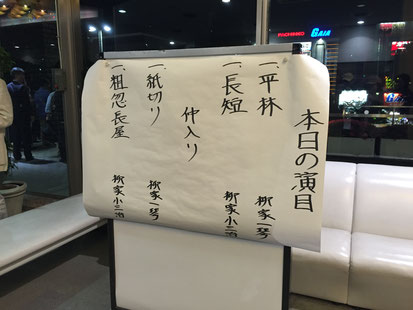 本日の演目
一、平林 柳家一琴
一、長短 柳家小三治
仲入り
一、紙切り 柳家一琴
一、粗忽長屋 柳家小三治
GAIA